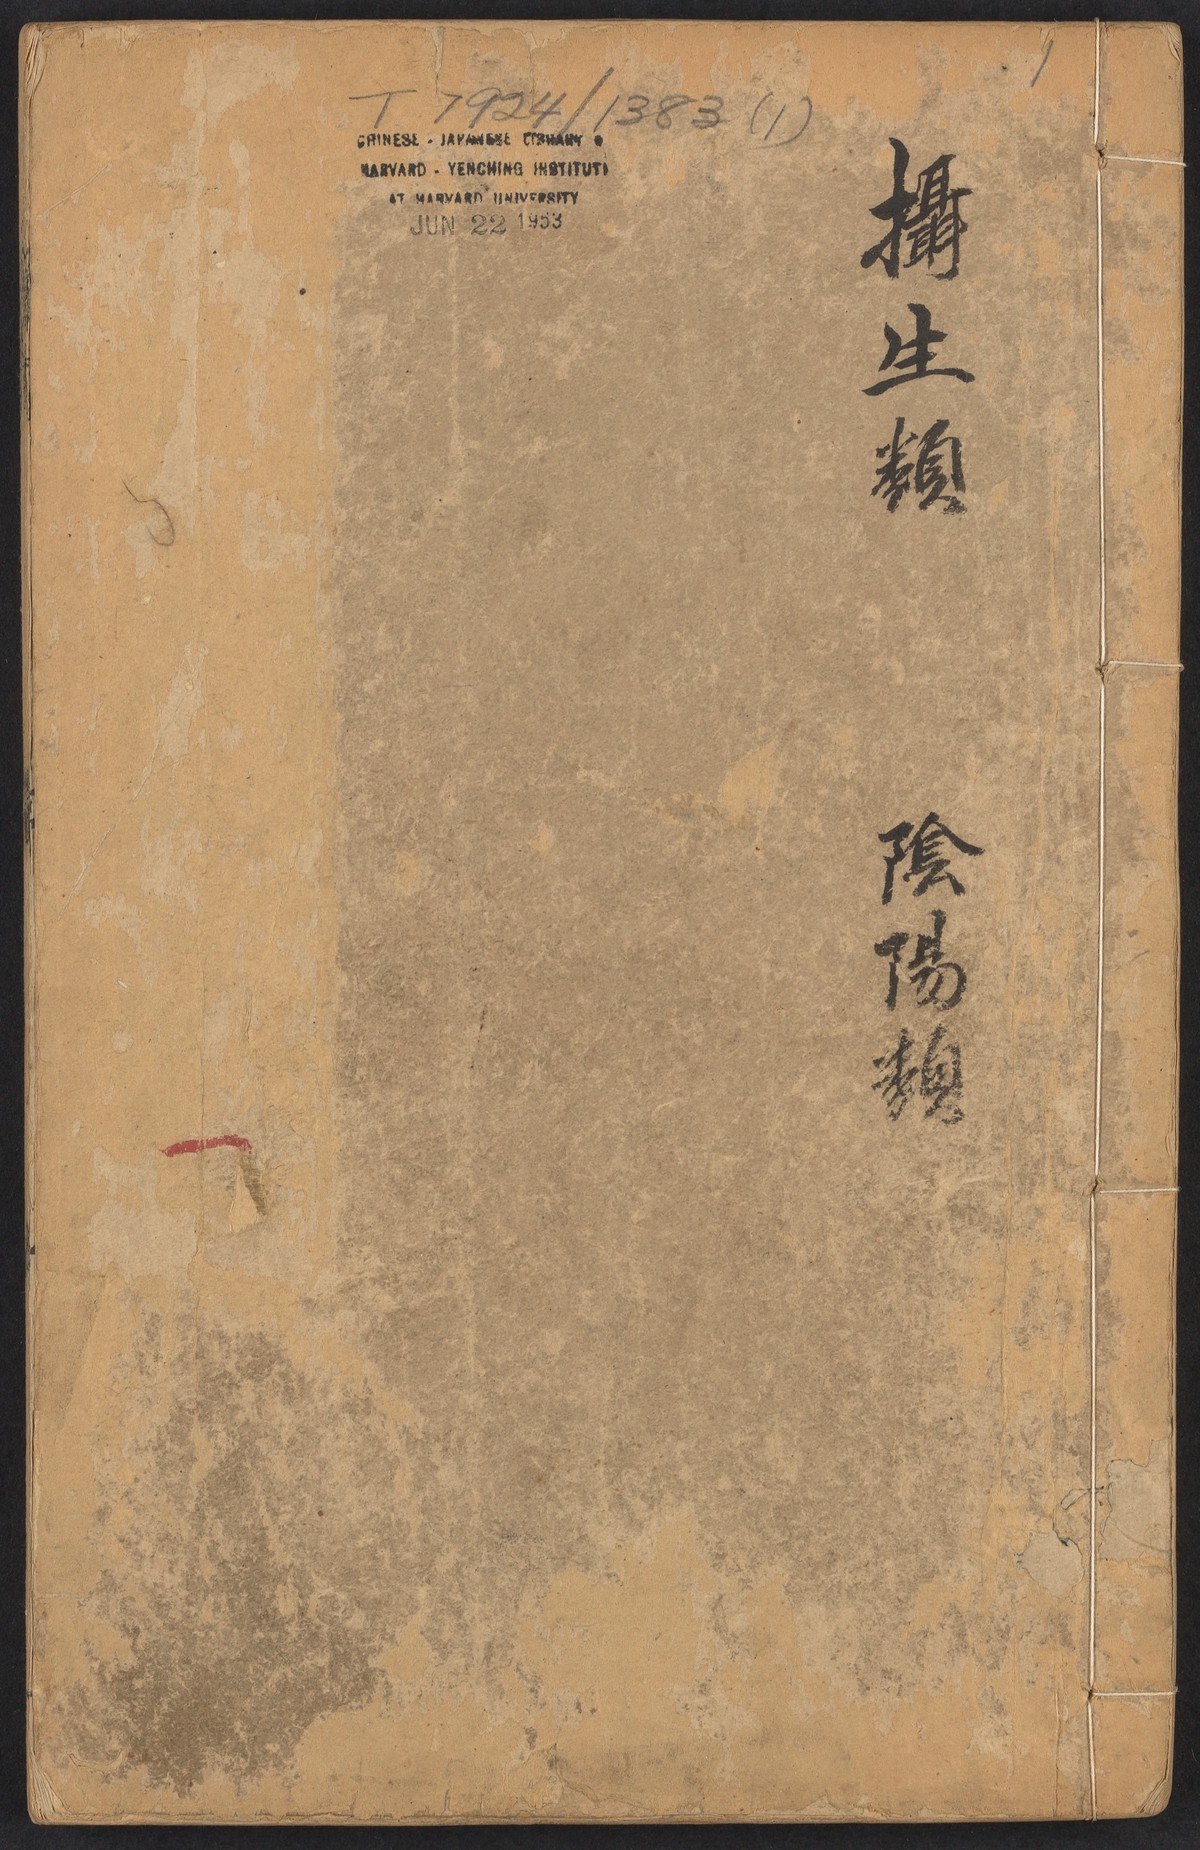 T 7924/1383 (1)
CHINESE - JAPANESE LIBRARY
HARVARD - YENCHING INSTITUTE
AT HARVARD UNIVERSITY
JUN 22 1953
1
攝生類 陰陽類